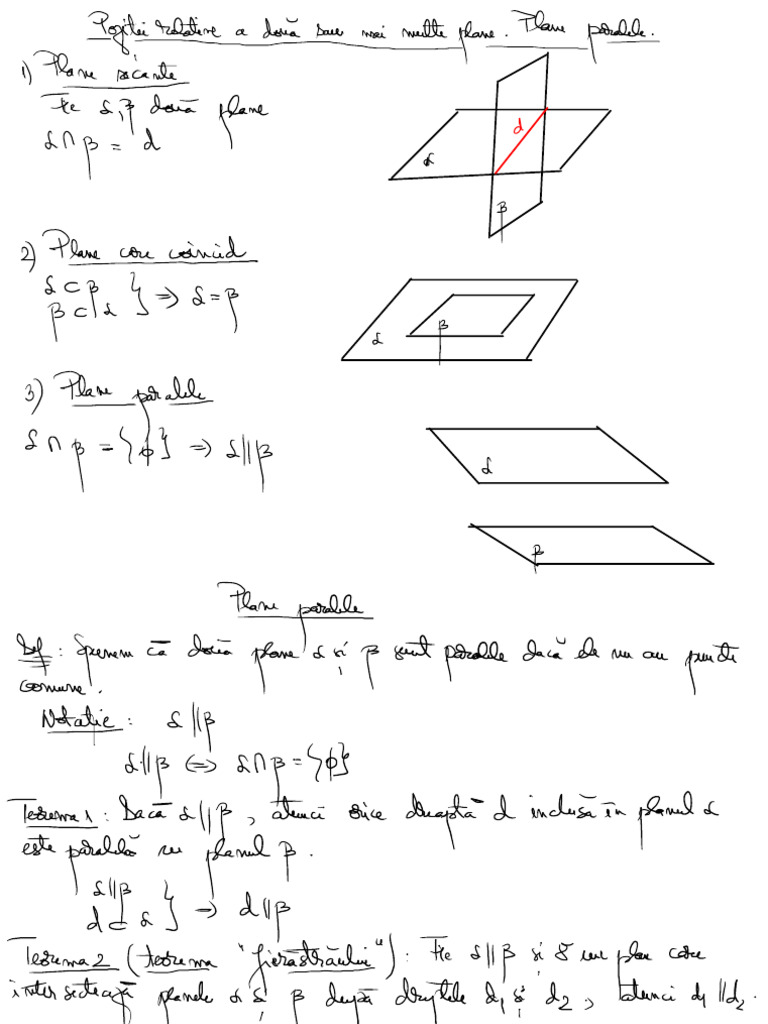 Poziții relative a două sau mai multe plane. Plane paralele.
1) Plane secante
Fie α, β două plane
α ∩ β = d
d
α
β
2) Plane care coincid
α ⊂ β
β ⊂ α } ⇒ α = β
α
β
3) Plane paralele
α ∩ β = {ϕ} ⇒ α || β
α
β
Plane paralele
Def : Spunem că două plane α și β sunt paralele dacă ele nu au puncte
comune.
Notație : α || β
α || β ⇔ α ∩ β = {ϕ}
Teorema 1 : Dacă α || β, atunci orice dreaptă d inclusă în planul α
este paralelă cu planul β.
α || β
d ⊂ α } ⇒ d || β
Teorema 2 (teorema "fierăstrăului") : Fie α || β și γ un plan care
intersectează planele α și β după dreptele d₁ și d₂, atunci d₁ || d₂.